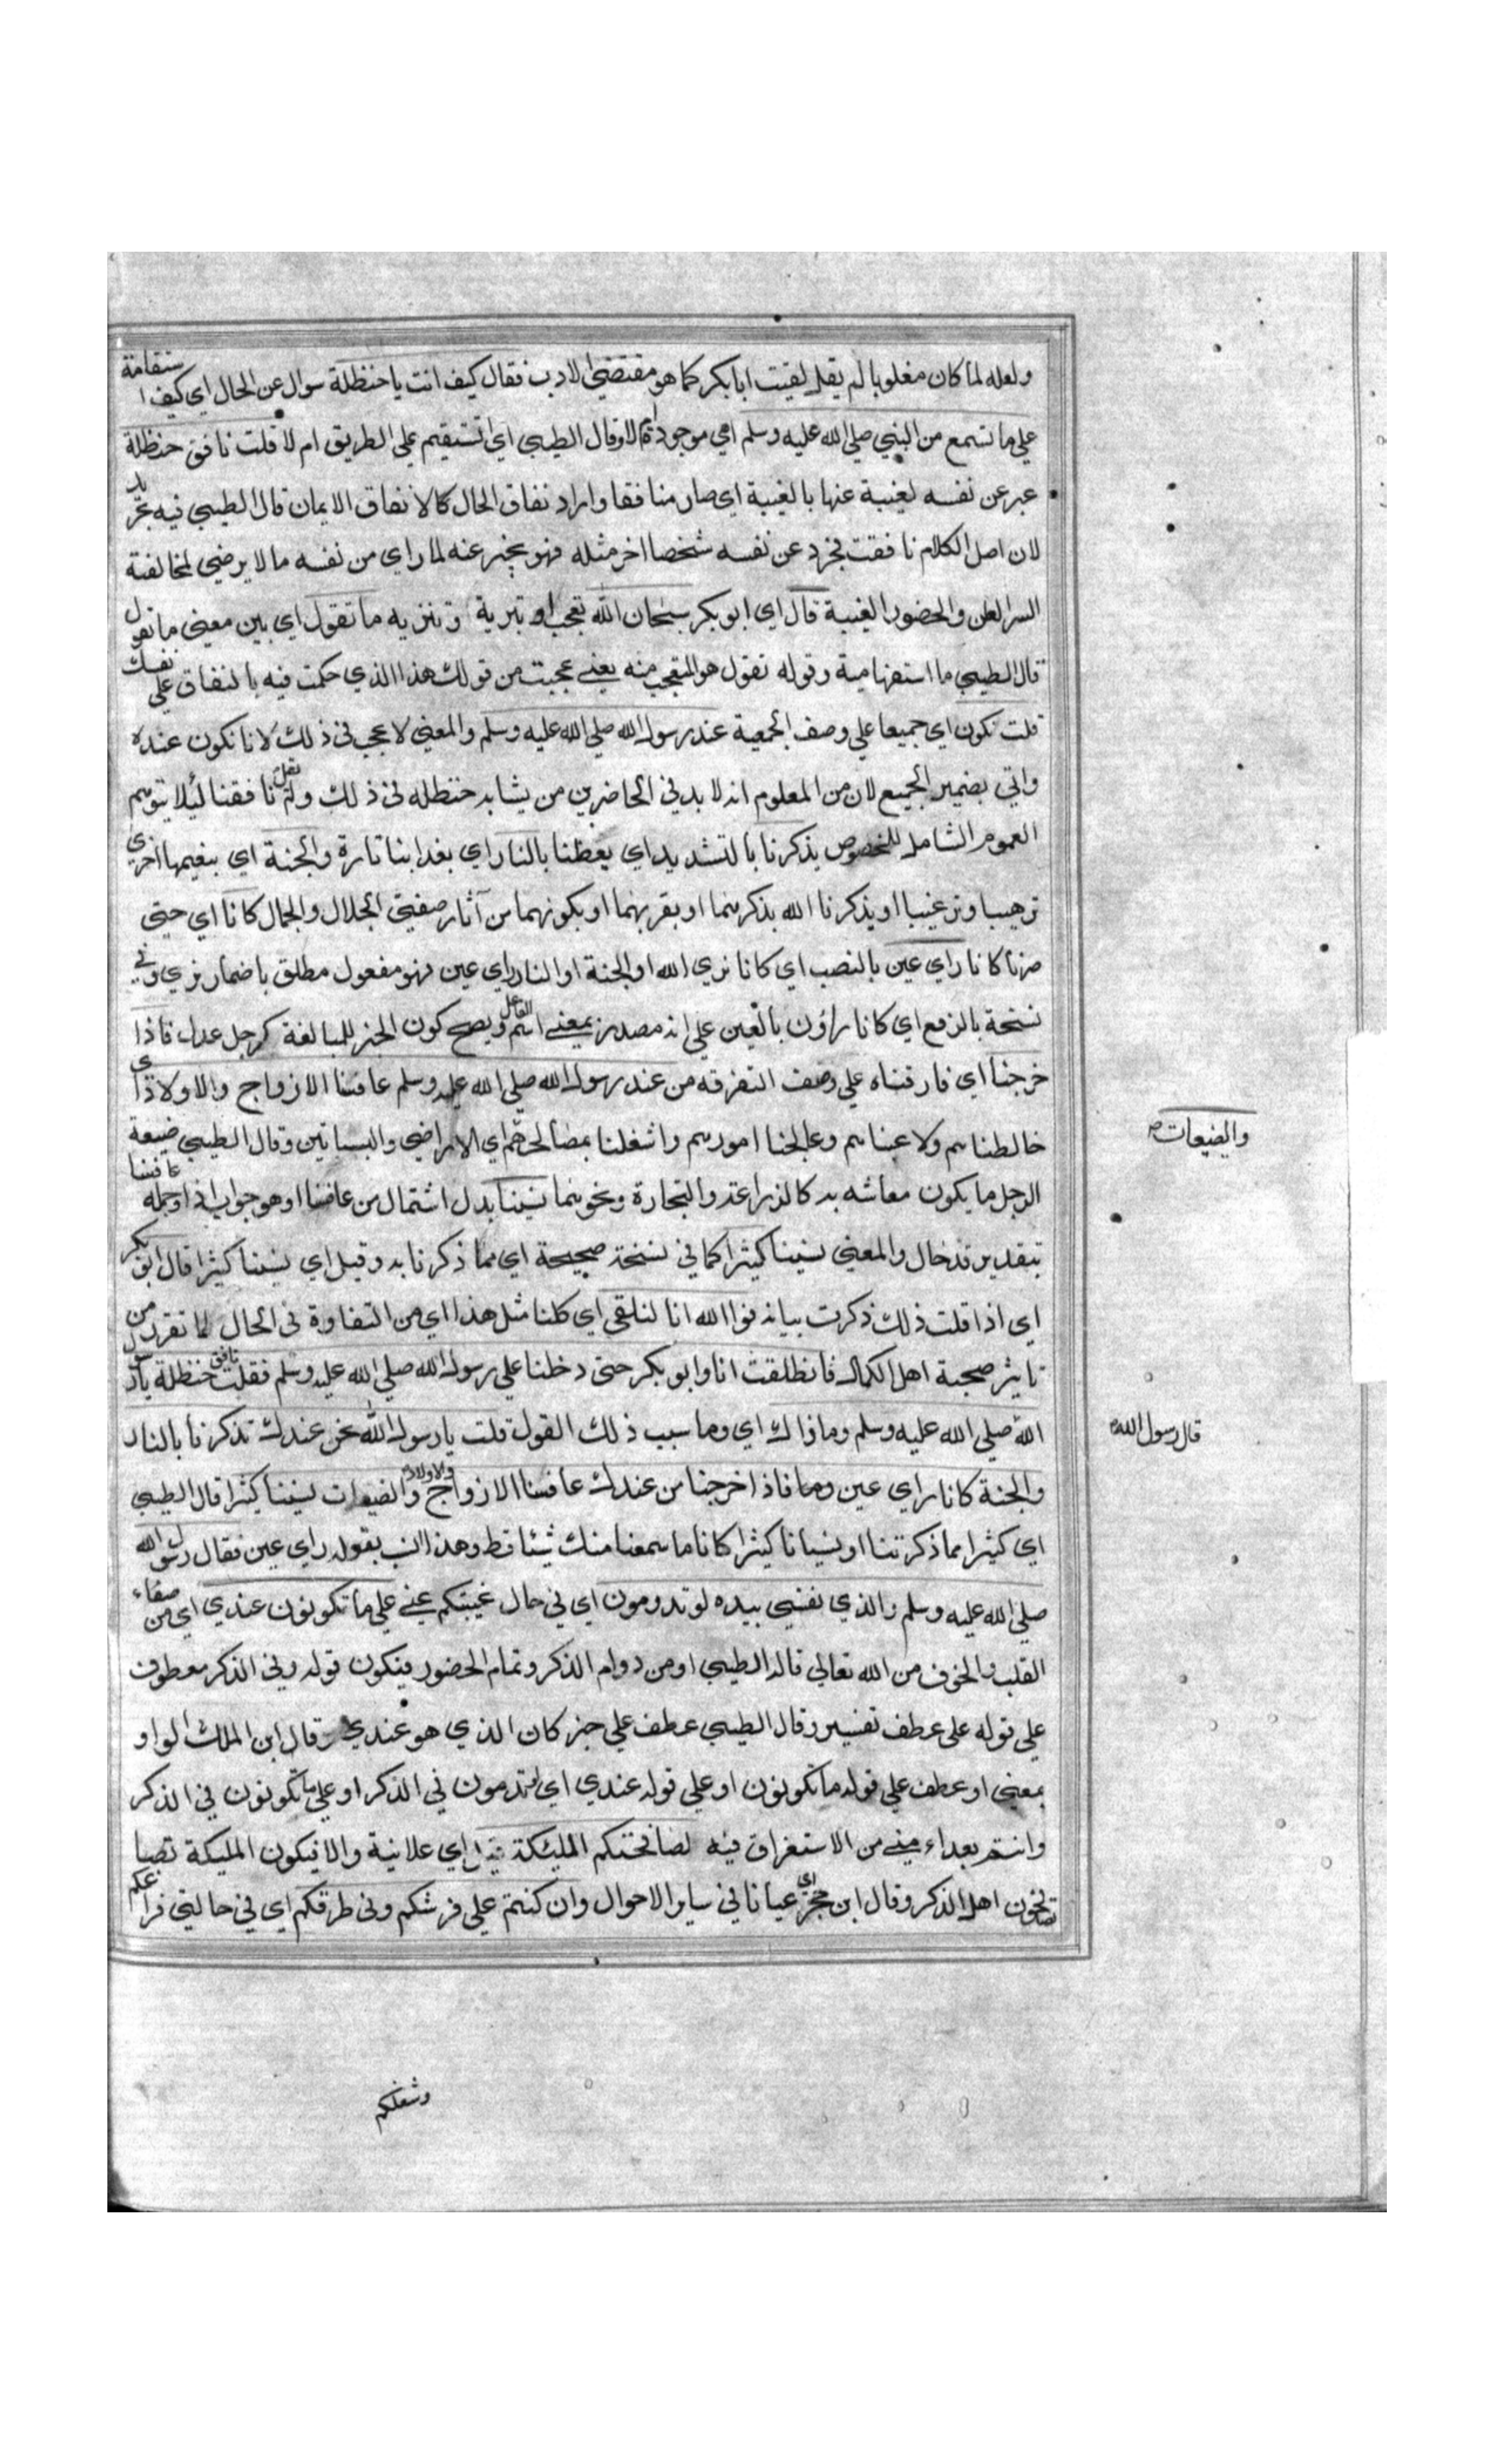 ولعله لما كان مغلوبا لم يقل لقيت ابا بكر كما هو مقتضي الادب فقال كيف انت يا حنظلة سوال عن الحال اي كيف استقامة
علي ما تسمع من النبي صلي الله عليه وسلم اهي موجودة ام لا وقال الطيبي اي اتستقيم علي الطريق ام لا قلت نافق حنظلة
عبر عن نفسه لغيبة عنها بالغيبة اي صار منافقا واراد نفاق الحال كالا نفاق الايمان قال الطيبي فيه تجريد
لان اصل الكلام نافقت فجرد عن نفسه شخصا اخر مثله فهو يخبر عنه لما راي من نفسه ما لا يرضي لمخالفة
السر العلن والحضور الغيبة قال اي ابو بكر سبحان الله تعجب او تبرية وتنزيه ما تقول اي بين معني ما تقول
قال الطيبي ما استفهامية وقوله تقول هو المتعجب منه يعني عجبت من قولك هذا الذي حكمت فيه بالنفاق علي نفسك
قلت نكون اي جميعا علي وصف الجمعية عند رسول الله صلي الله عليه وسلم والمعني لا عجب في ذلك لانا نكون عنده
واتي بضمير الجميع لان من المعلوم انه لا بد في الحاضرين من يشابه حنظله في ذلك ولم نقل نافقنا لئلا يتوهم
العموم الشامل للخصوص يذكرنا بالتشديد اي يعظنا بالنار اي بعذابنا تارة والجنة اي بنعيمها اخري
ترهيبا وترغيبا او يذكرنا الله بذكرهما او بقربهما او بكونهما من آثار صفتي الجلال والجمال كانا اي حتي
صرنا كانا راي عين بالنصب اي كانا نري الله او الجنة او النار راي عين فهو مفعول مطلق باضمار نري وفي
نسخة بالرفع اي كانا راؤن بالعين علي انه مصدر بمعني اسم الفاعل ويصح كون الخبر للمبالغة كرجل عدل فاذا
خرجنا اي فارقناه علي وصف التفرقه من عند رسول الله صلي الله عليه وسلم عافسنا الازواج والاولاد اي
خالطناهم ولاعبناهم وعالجنا امورهم واشغلنا بمصالحهم اي الاراضي والبساتين وقال الطيبي ضيعة
والضيعات
الرجل ما يكون معاشه به كالزراعة والتجارة ونحوهما نسينا بدل اشتمال من عافسنا او هو جواب اذا وجملة عافسنا
بتقدير قد حال والمعني نسينا كثيرا كما في نسخة صحيحة اي مما ذكرنا به وقيل اي نسينا كثيرا قال ابو بكر
اي اذا قلت ذلك ذكرت بيانه فوالله انا لنلقي اي كلنا مثل هذا اي من التفاوة في الحال لما تقرر من
تاثير صحبة اهل الكمال فانطلقت انا وابو بكر حتي دخلنا علي رسول الله صلي الله عليه وسلم فقلت نافق حنظلة يا رسول
الله صلي الله عليه وسلم وما ذاك اي وما سبب ذلك القول قلت يا رسول الله نحن عندك تذكرنا بالنار
قال رسول الله
والجنة كانا راي عين فاذا خرجنا من عندك عافسنا الازواج والاولاد والضيعات نسينا كثيرا قال الطيبي
اي كثيرا مما ذكرتنا او نسيانا كثيرا كانا ما سمعنا منك شيئا قط وهذا انسب بقوله راي عين فقال رسول الله
صلي الله عليه وسلم والذي نفسي بيده لو تدومون اي في حال غيبتكم عني علي ما تكونون عندي اي من صفاء
القلب والخوف من الله تعالي قاله الطيبي او من دوام الذكر وتمام الحضور فيكون قوله وفي الذكر معطوف
علي قوله علي عطف تفسير وقال الطيبي عطف علي خبر كان الذي هو عندي وقال ابن الملك الواو
بمعني او عطف علي قوله ما تكونون او علي قوله عندي اي لو تدومون في الذكر او علي ما تكونون في الذكر
وانتم بعداء مني من الاستغراق فيه لصافحتكم الملئكة اي علانية والا فيكون المليكة تصا
تصافحون اهل الذكر وقال ابن حجر اي عيانا في ساير الاحوال وان كنتم علي فرشكم وفي طرقكم اي في حالتي فراغكم
وشغلكم